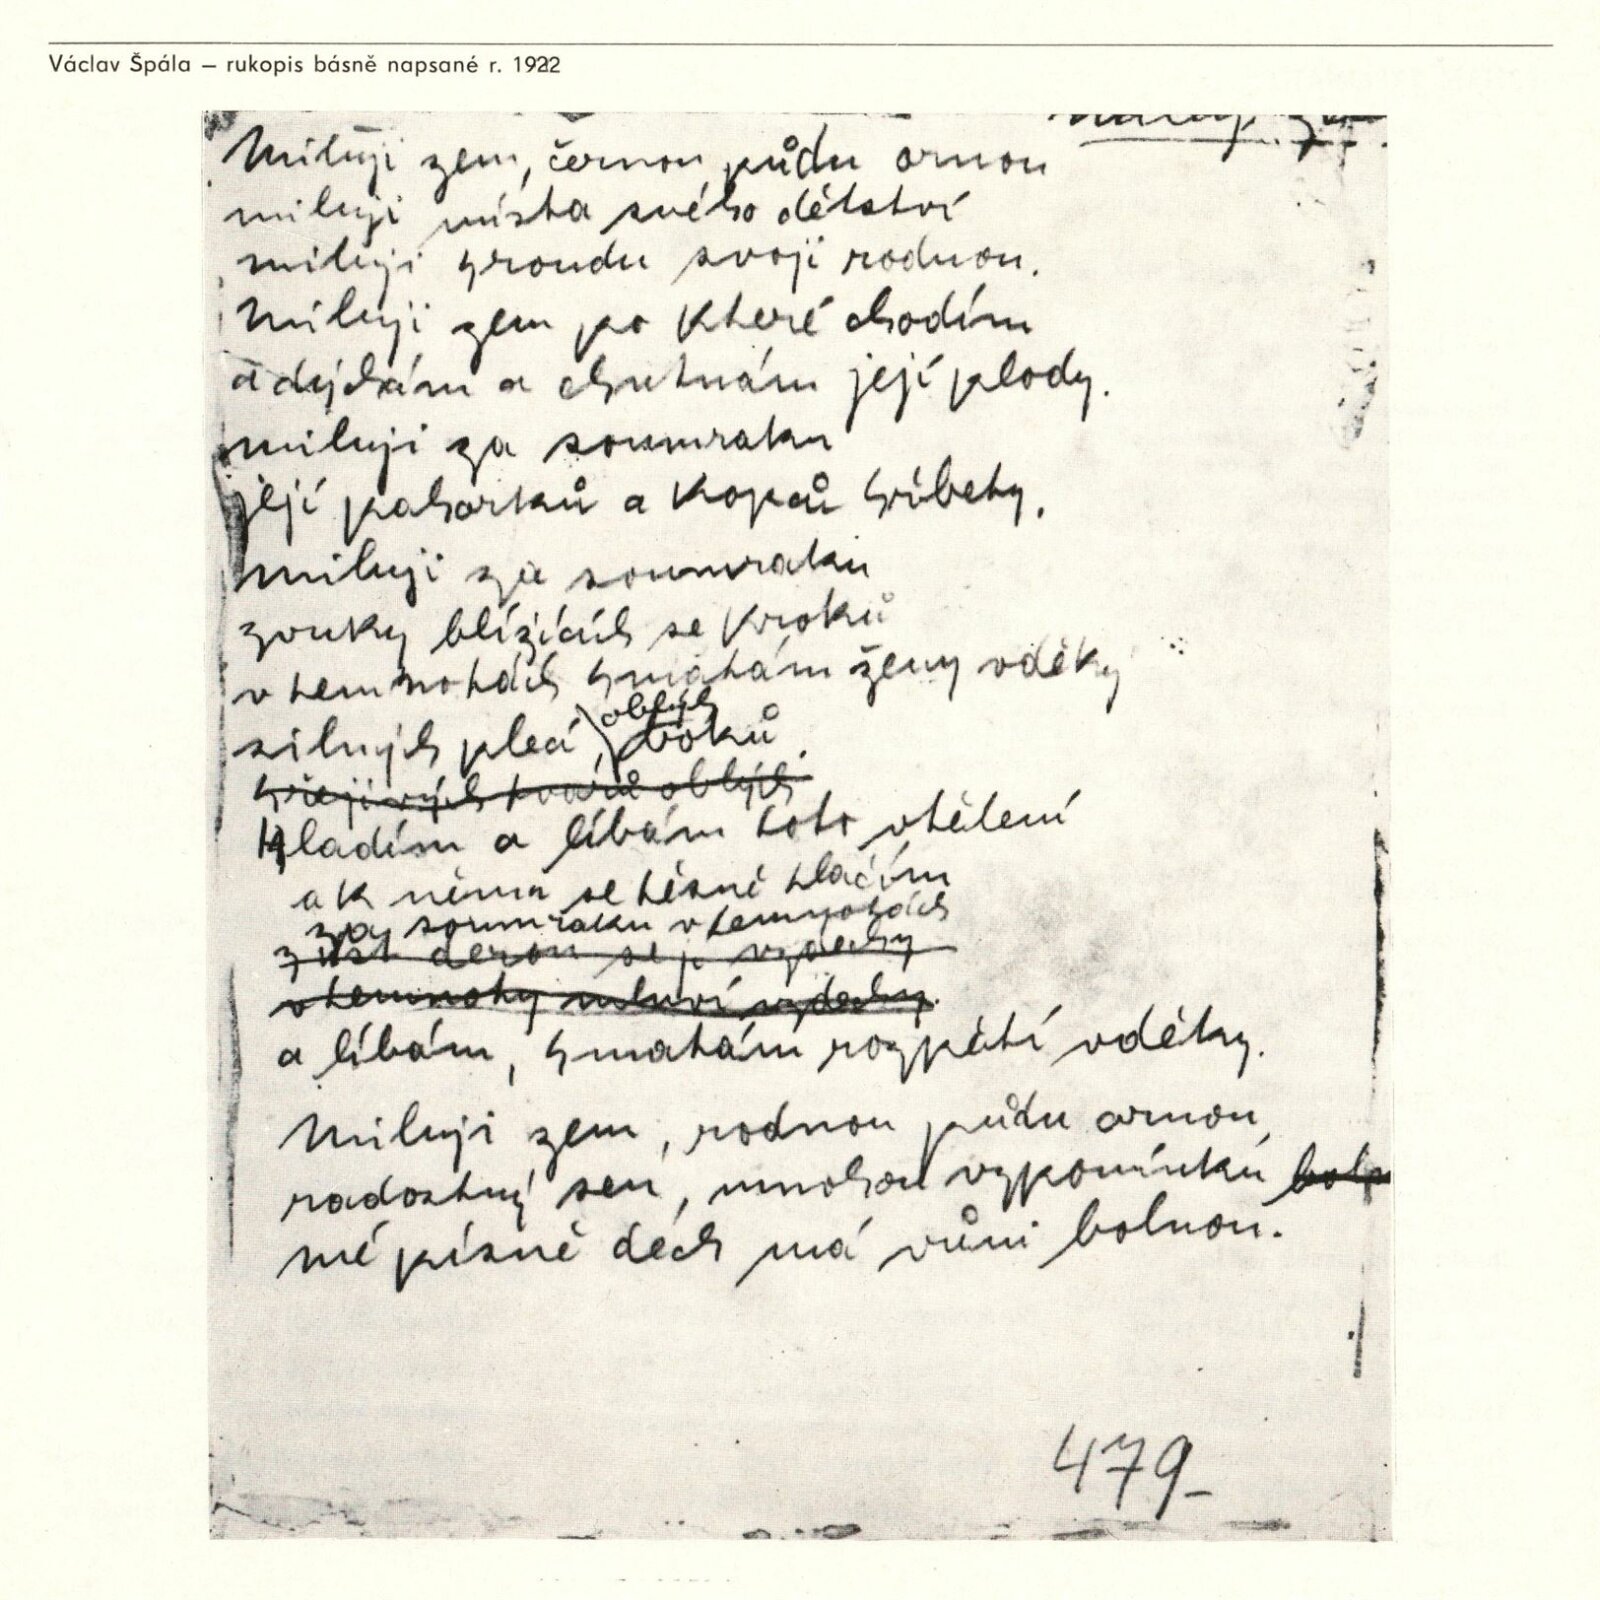 Václav Špála – rukopis básně napsané r. 1922
Miluji zem, černou půdu ornou
miluji místa svého dětství
miluji hroudu svoji rodnou.
Miluji zem po které chodím
a dýchám a chutnám její plody.
miluji za soumraku
její pahorků a kopců hřbety.
miluji za soumraku
zvuky blížících se kroků
v temnotách hmatám ženy vděky
oblých
silných plecí, boků.
hřejivých tváří oblých
Hladím a líbám toto vtělení
a k němu se těsně tlačím
za soumraku v temnotách
se vzdechy
v temnoty mluví vzdechy.
a líbám, hmatám rozpětí vděky.
Miluji zem, rodnou půdu ornou,
radostný sen, mnohou vzpomínku
mé písně dech má vůni bolnou.
479–